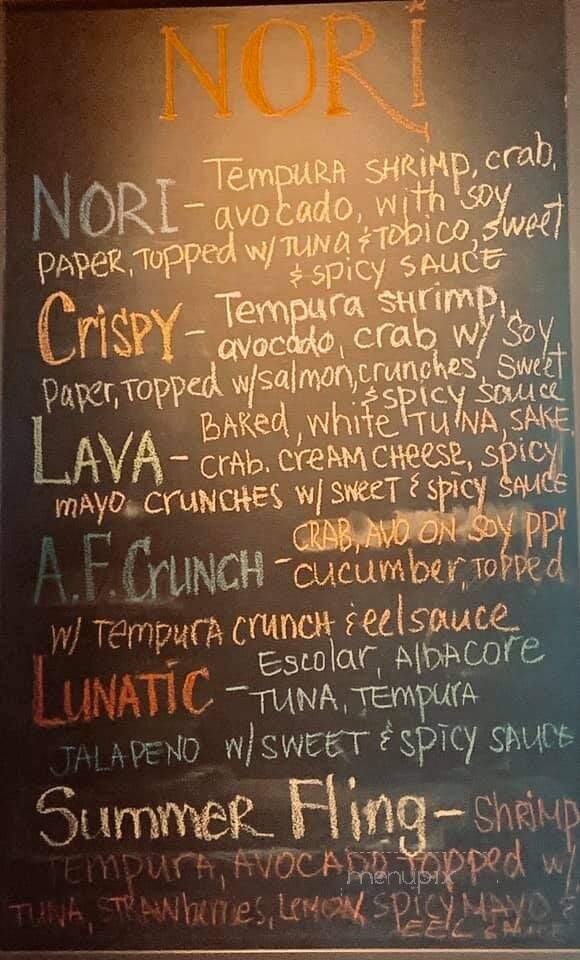 NORi
NORI - TEMPURA SHRIMP, crab,
avocado, with SOY
PAPER, TOPPED W/ TUNA & TOBICO, sweet
& SPICY SAUCE
CRISPY - Tempura SHrimp,
avocado, crab w/ Soy
Paper, TOPPED w/salmon, crunches, Sweet
& spicy sauce
LAVA - BAKED, white TUNA, SAKE,
CrAb. CREAM CHEESE, spicy
mAyo CRUNCHES w/ SWEET & SPICY SAUCE
A.F. CRUNCH - CRAB, AVO ON SOY PPr
cucumber, TOPPED
W/ TEMPURA CRUNCH & eel sauce
LUNATIC - Escolar, AlbACORE
TUNA, TEMPURA
JALAPENO w/ SWEET & SPICY SAUCE
SummER Fling - SHRIMP
TEMPURA, AVOCADO TOPPED W/
TUNA, STRAWberries, LEMON, SPICY MAYO &
EEL SAUCE
menupix